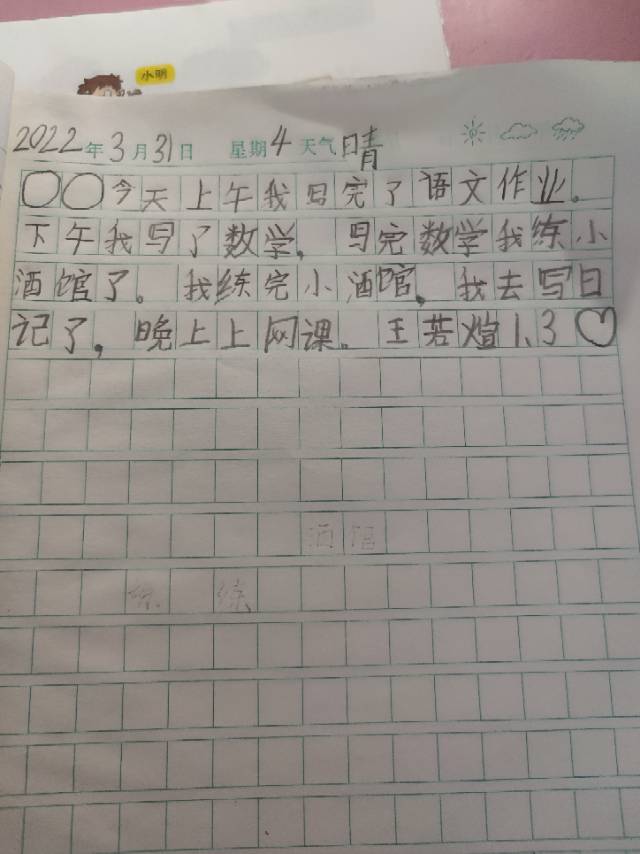 小明
2022年3月31日 星期4 天气晴
○○今天上午我写完了语文作业。
下午我写了数学，写完数学我练小
酒馆了。我练完小酒馆，我去写日
记了，晚上上网课。王若煊1.3♡
酒馆
练 练